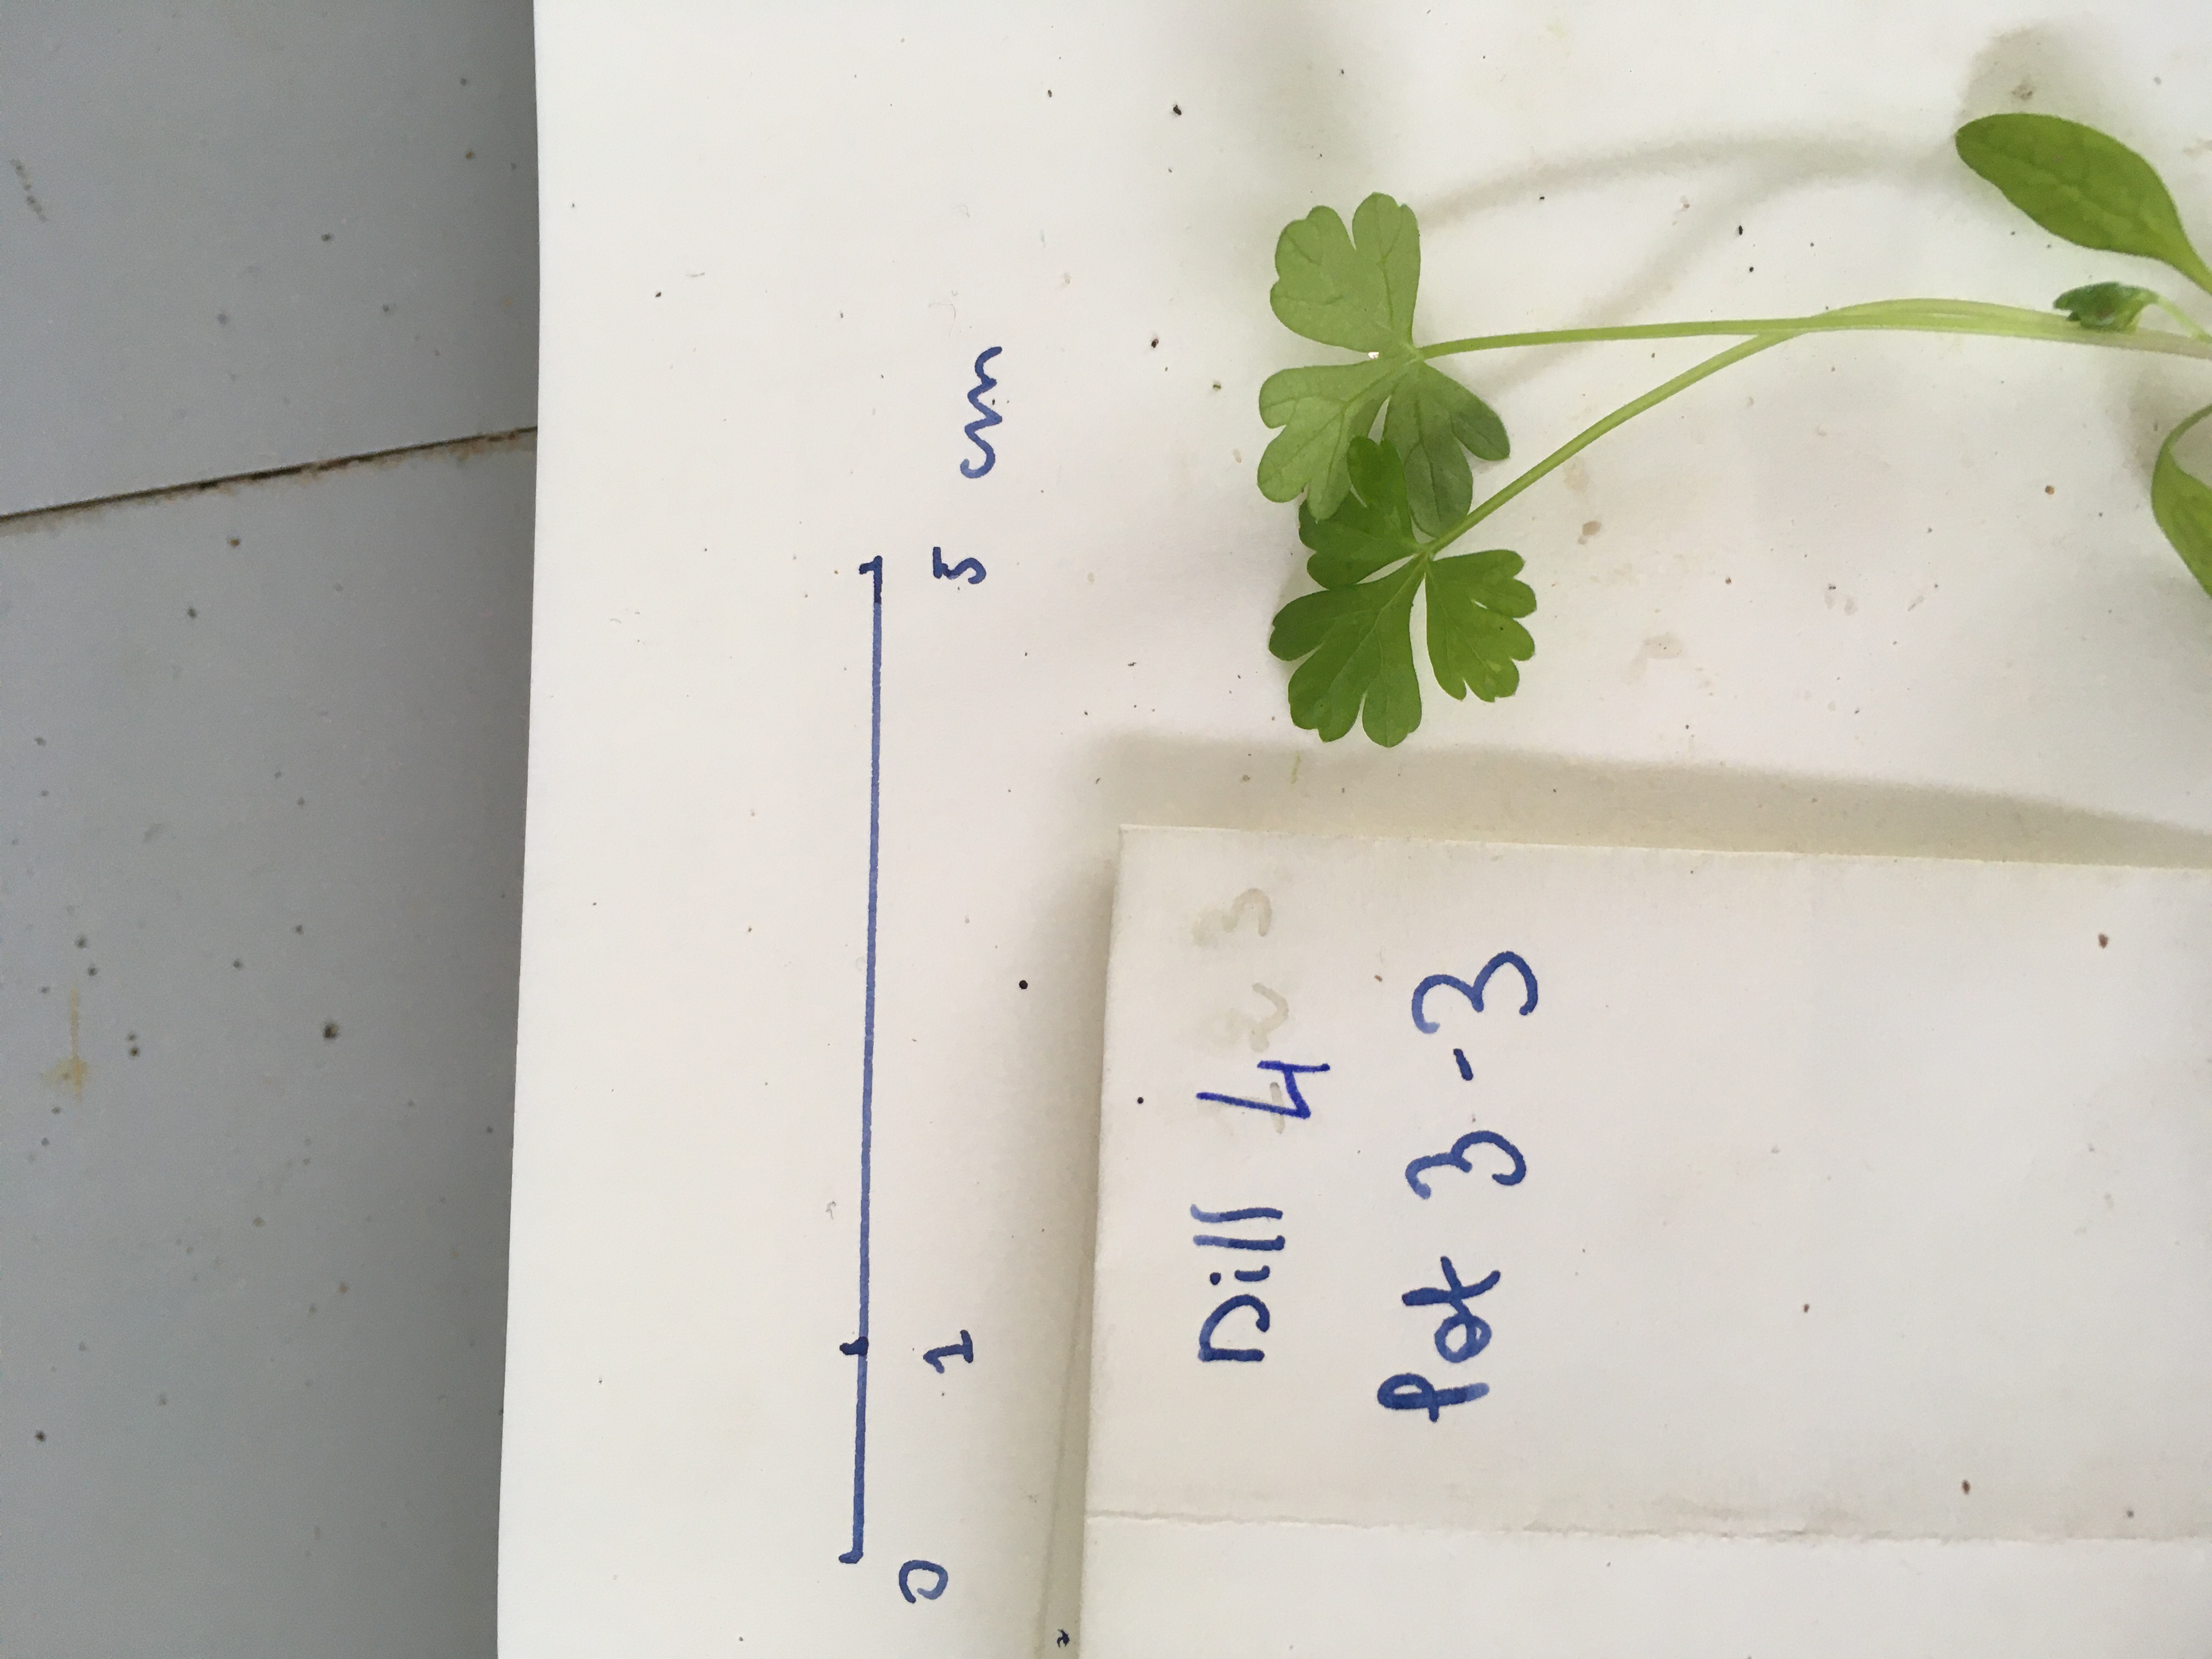 0 1 5 cm
Dill 4
Pot 3-3